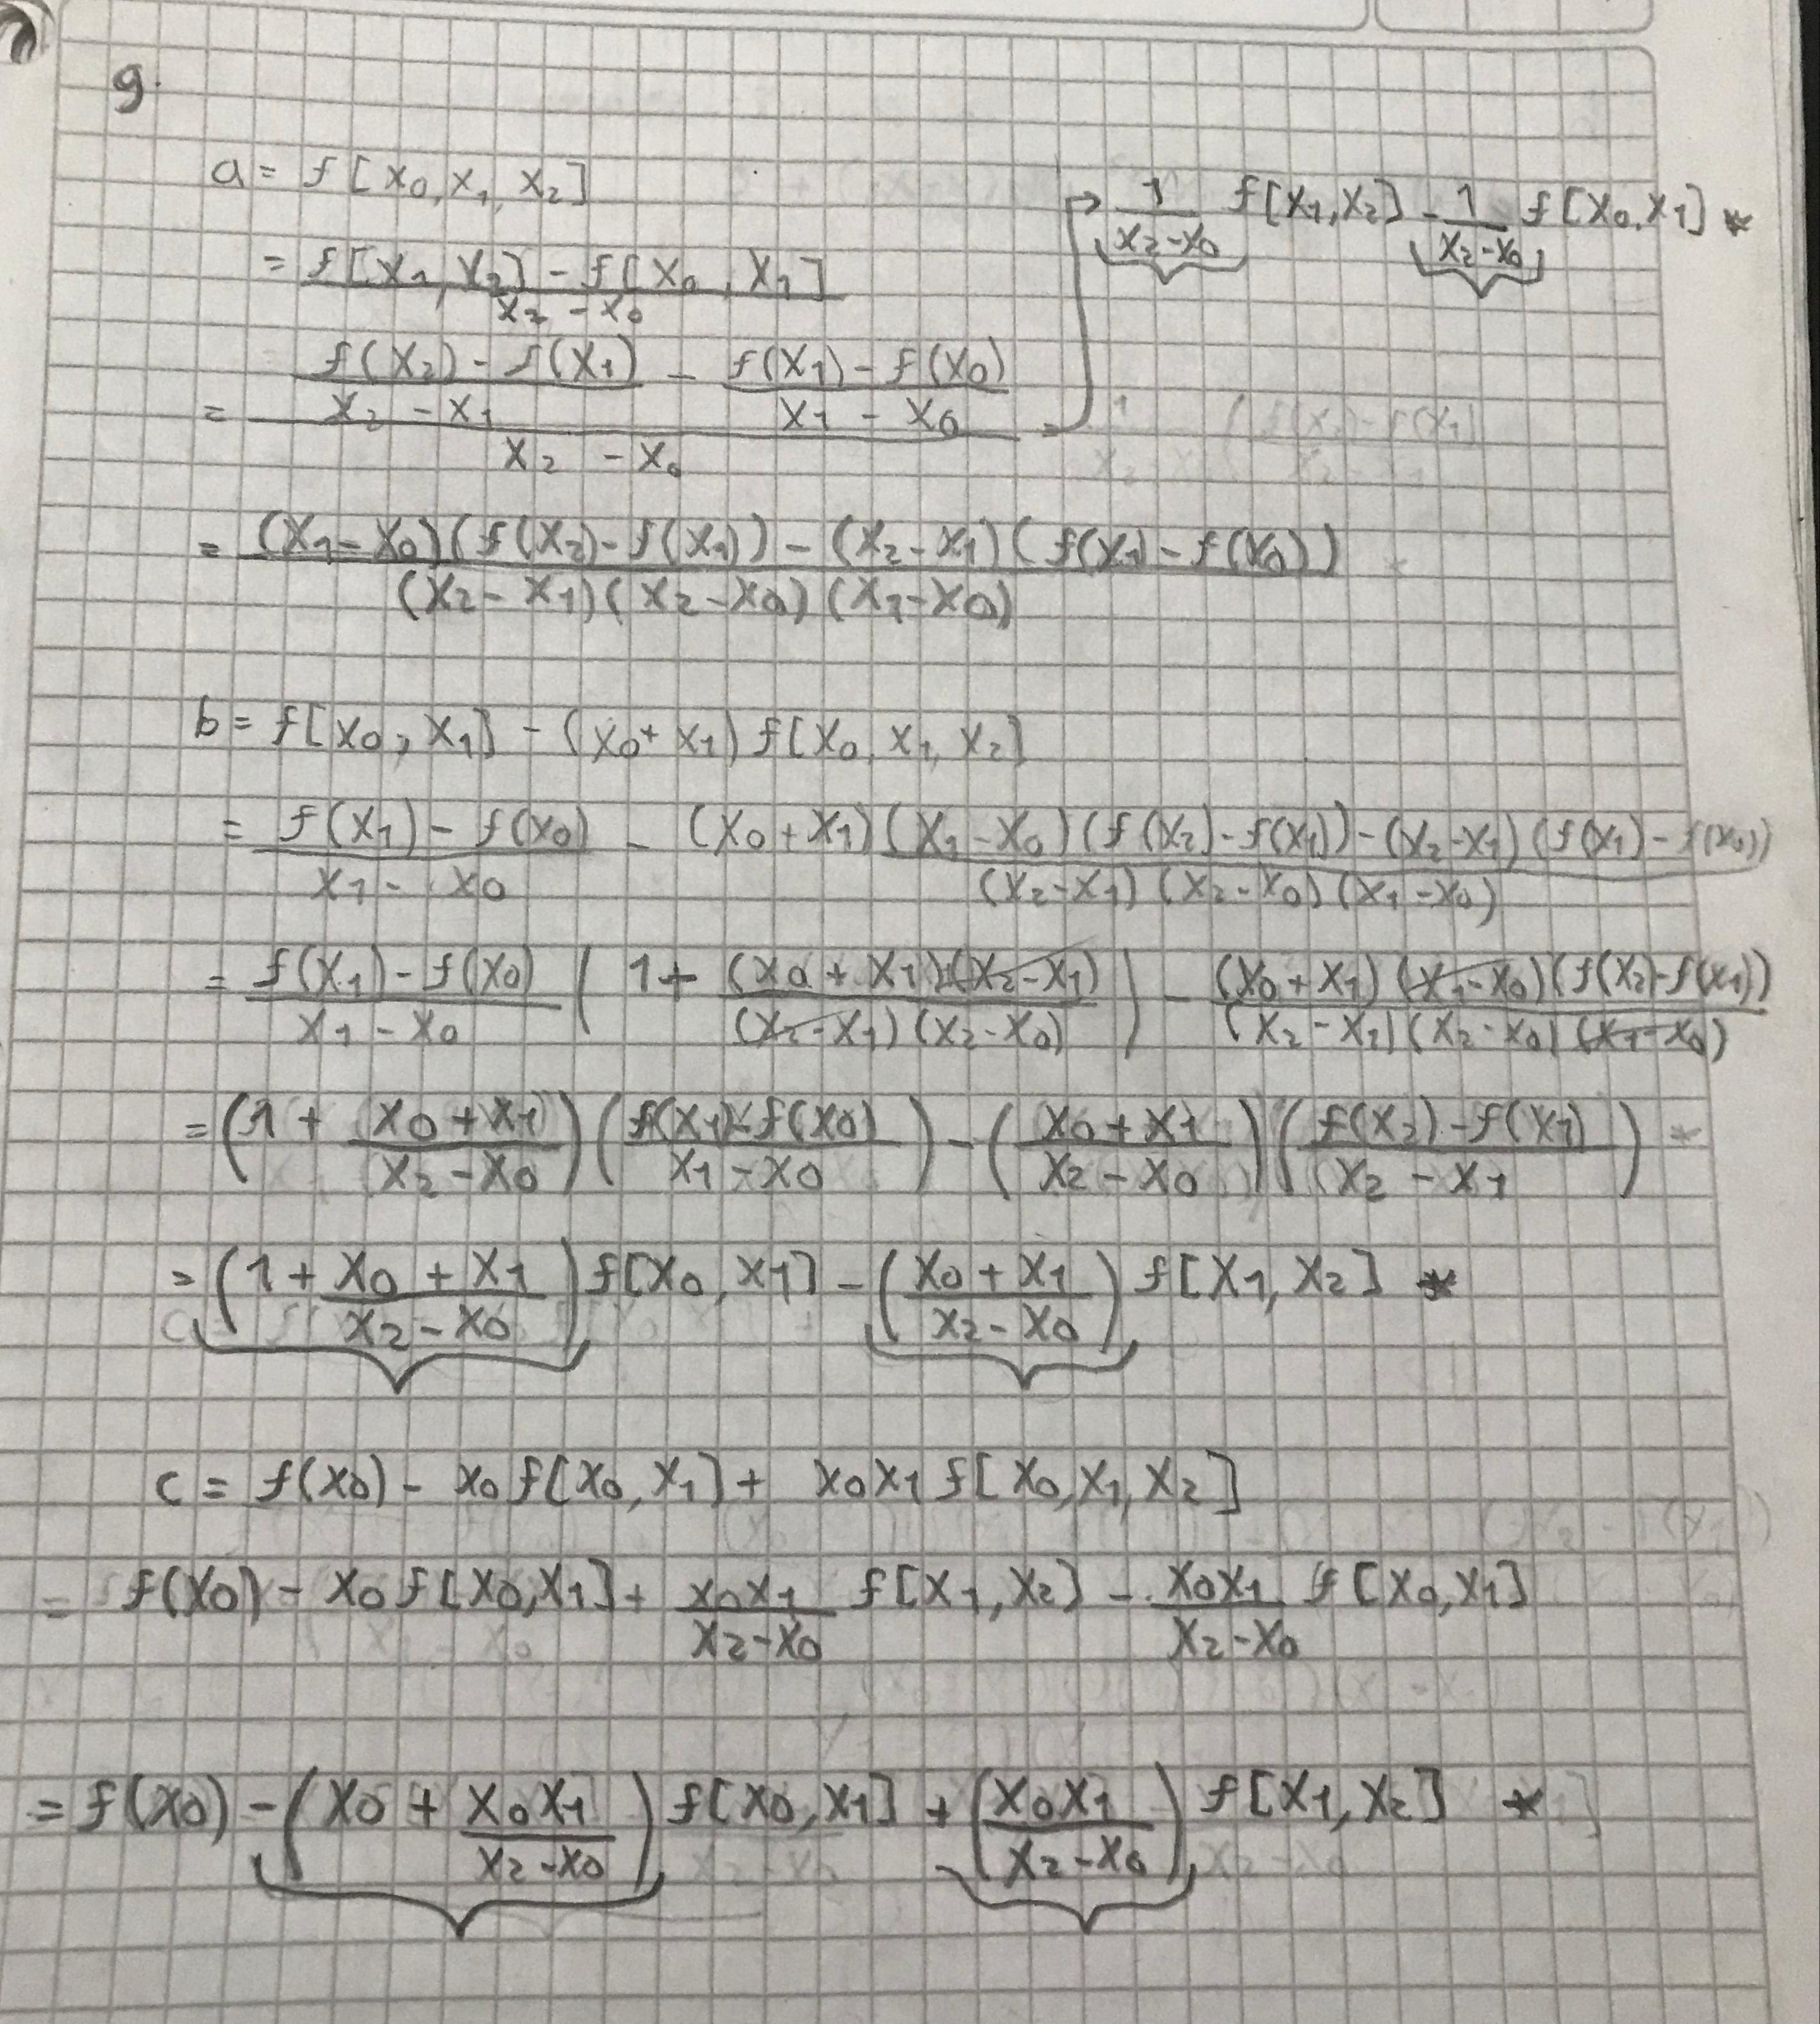 9.
a = f[x₀, x₁, x₂]
= (f[x₁, x₂] - f[x₀, x₁]) / (x₂ - x₀)
= ((f(x₂) - f(x₁)) / (x₂ - x₁) - (f(x₁) - f(x₀)) / (x₁ - x₀)) / (x₂ - x₀) =
→ 1/(x₂-x₀) f[x₁,x₂] - 1/(x₂-x₀) f[x₀,x₁] *
= ((x₁-x₀)(f(x₂)-f(x₁)) - (x₂-x₁)(f(x₁)-f(x₀))) / ((x₂-x₁)(x₂-x₀)(x₁-x₀))
b = f[x₀, x₁] - (x₀+x₁) f[x₀, x₁, x₂]
= (f(x₁) - f(x₀)) / (x₁ - x₀) - (x₀+x₁) ((x₁-x₀)(f(x₂)-f(x₁)) - (x₂-x₁)(f(x₁)-f(x₀))) / ((x₂-x₁)(x₂-x₀)(x₁-x₀))
= (f(x₁) - f(x₀)) / (x₁ - x₀) (1 + (x₀+x₁)(x₂-x₁) / ((x₂-x₁)(x₂-x₀))) - (x₀+x₁)(x₁-x₀)(f(x₂)-f(x₁)) / ((x₂-x₁)(x₂-x₀)(x₁-x₀))
= (1 + (x₀+x₁)/(x₂-x₀)) ((f(x₁)-f(x₀))/(x₁-x₀)) - ((x₀+x₁)/(x₂-x₀)) ((f(x₂)-f(x₁))/(x₂-x₁)) *
= (1 + (x₀+x₁)/(x₂-x₀)) f[x₀, x₁] - ((x₀+x₁)/(x₂-x₀)) f[x₁, x₂] *
c = f(x₀) - x₀ f[x₀, x₁] + x₀x₁ f[x₀, x₁, x₂]
= f(x₀) - x₀ f[x₀,x₁] + x₀x₁/(x₂-x₀) f[x₁, x₂] - x₀x₁/(x₂-x₀) f[x₀, x₁]
= f(x₀) - (x₀ + x₀x₁/(x₂-x₀)) f[x₀, x₁] + (x₀x₁/(x₂-x₀)) f[x₁, x₂] *